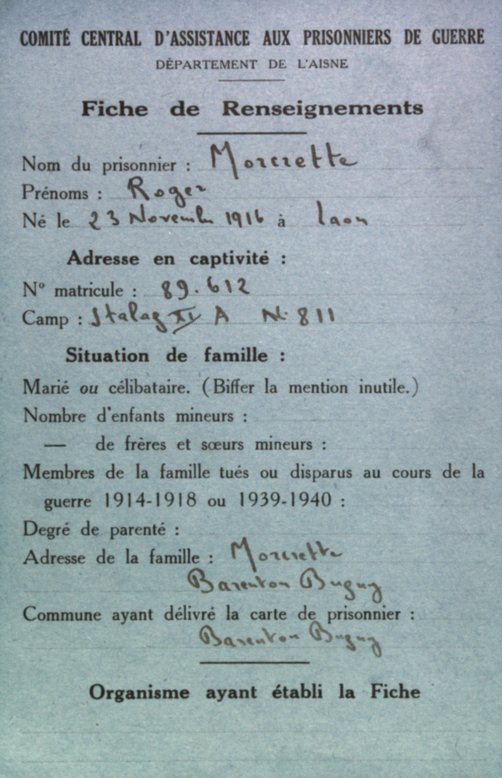 COMITÉ CENTRAL D'ASSISTANCE AUX PRISONNIERS DE GUERRE
DÉPARTEMENT DE L'AISNE
Fiche de Renseignements
Nom du prisonnier : Morcrette
Prénoms : Roger
Né le 23 Novembre 1916 à Laon
Adresse en captivité :
N° matricule : 89.612
Camp : Stalag XI A N. 811
Situation de famille :
Marié ou célibataire. (Biffer la mention inutile.)
Nombre d'enfants mineurs :
— de frères et sœurs mineurs :
Membres de la famille tués ou disparus au cours de la
guerre 1914-1918 ou 1939-1940 :
Degré de parenté :
Adresse de la famille : Morcrette
Barenton Bugny
Commune ayant délivré la carte de prisonnier :
Barenton Bugny
Organisme ayant établi la Fiche